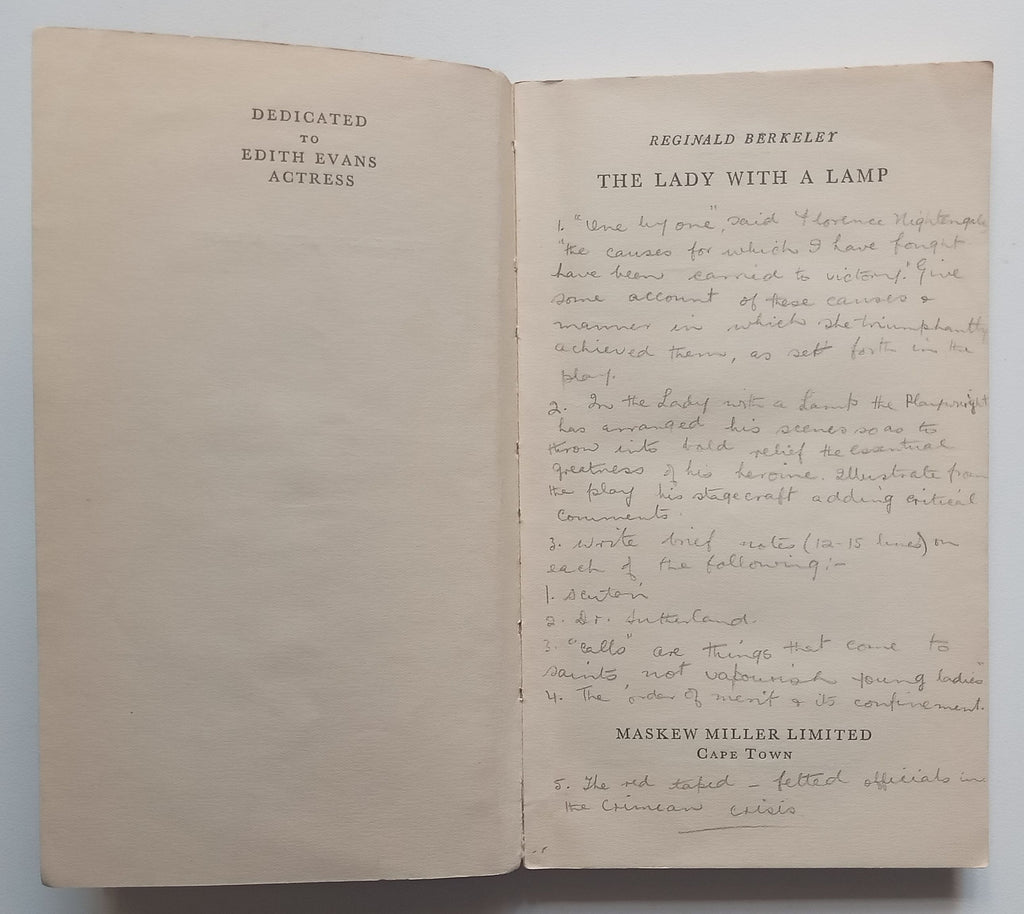 DEDICATED
TO
EDITH EVANS
ACTRESS
REGINALD BERKELEY
THE LADY WITH A LAMP
1. "One by one", said Florence Nightengale
"the causes for which I have fought
have been carried to victory." Give
some account of these causes &
manner in which she triumphantly
achieved them, as set forth in the
play.
2. In the Lady with a Lamp the Playwright
has arranged his scenes so as to
throw into bold relief the essential
greatness of his heroine. Illustrate from
the play his stagecraft adding critical
comments.
3. Write brief notes (12-15 lines) on
each of the following:-
1. Scutari
2. Dr. Sutherland.
3. "calls" are things that come to
saints, not vapourish young ladies"
4. The order of merit & its confinement.
MASKEW MILLER LIMITED
CAPE TOWN
5. The red taped - officials in
the Crimean crisis